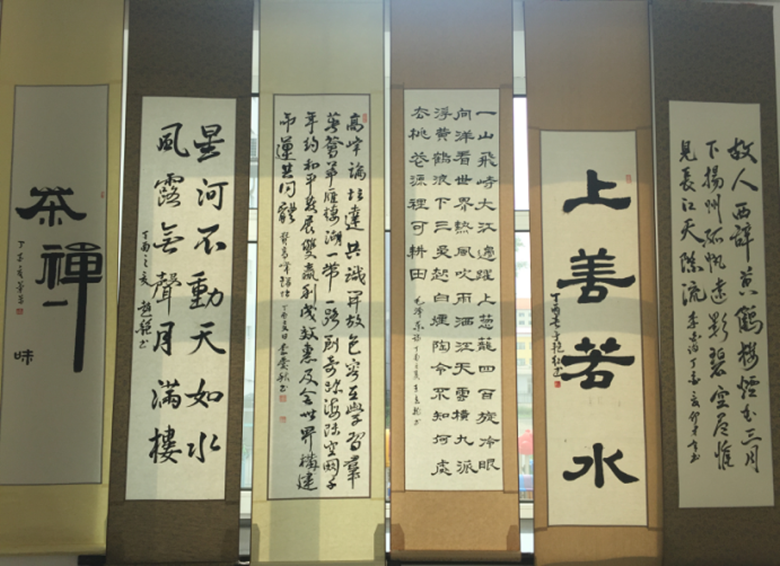 茶禪一味
星河不動天如水
風露無聲月滿樓
丁酉之夏
高峰論壇達共識開放包容互學習羣
英薈萃雁棲湖一帶一路創奇跡海陸空網
年約和平發展雙贏利成效惠及全世界構建
命運共同體
一山飛峙大江邊躍上葱蘢四百旋冷眼
向洋看世界熱風吹雨洒江天雲橫九派
浮黃鶴浪下三吳起白煙陶令不知何處
去桃花源裡可耕田 毛澤東詩丁酉之夏
上善若水
丁酉春
故人西辭黃鶴樓煙花三月
下揚州孤帆遠影碧空盡惟
見長江天際流 李白詩丁酉夏